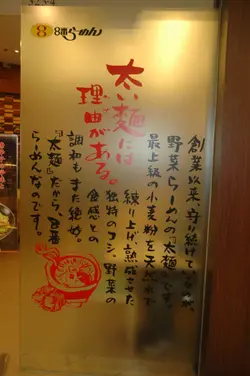 8番らーめん
太い麺には
理由がある。
創業以来、守り続けて
野菜らーめんの『太麺』です。
最上級の小麦粉を天然水で
練り上げ、熟成させた
独特のコシ。野菜の
食感との
調和もまた絶妙。
『太麺』だから、8番
らーめんなのです。